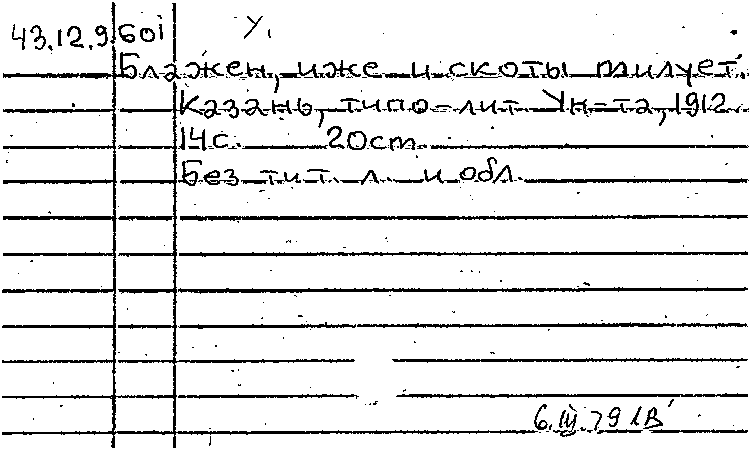 43.12.9.60i У.
Блажен, иже и скоты милует.
Казань, типо-лит. Ун-та, 1912.
14 с. 20 cm.
Без тит. л. и обл.
6.III.79 ЛВ